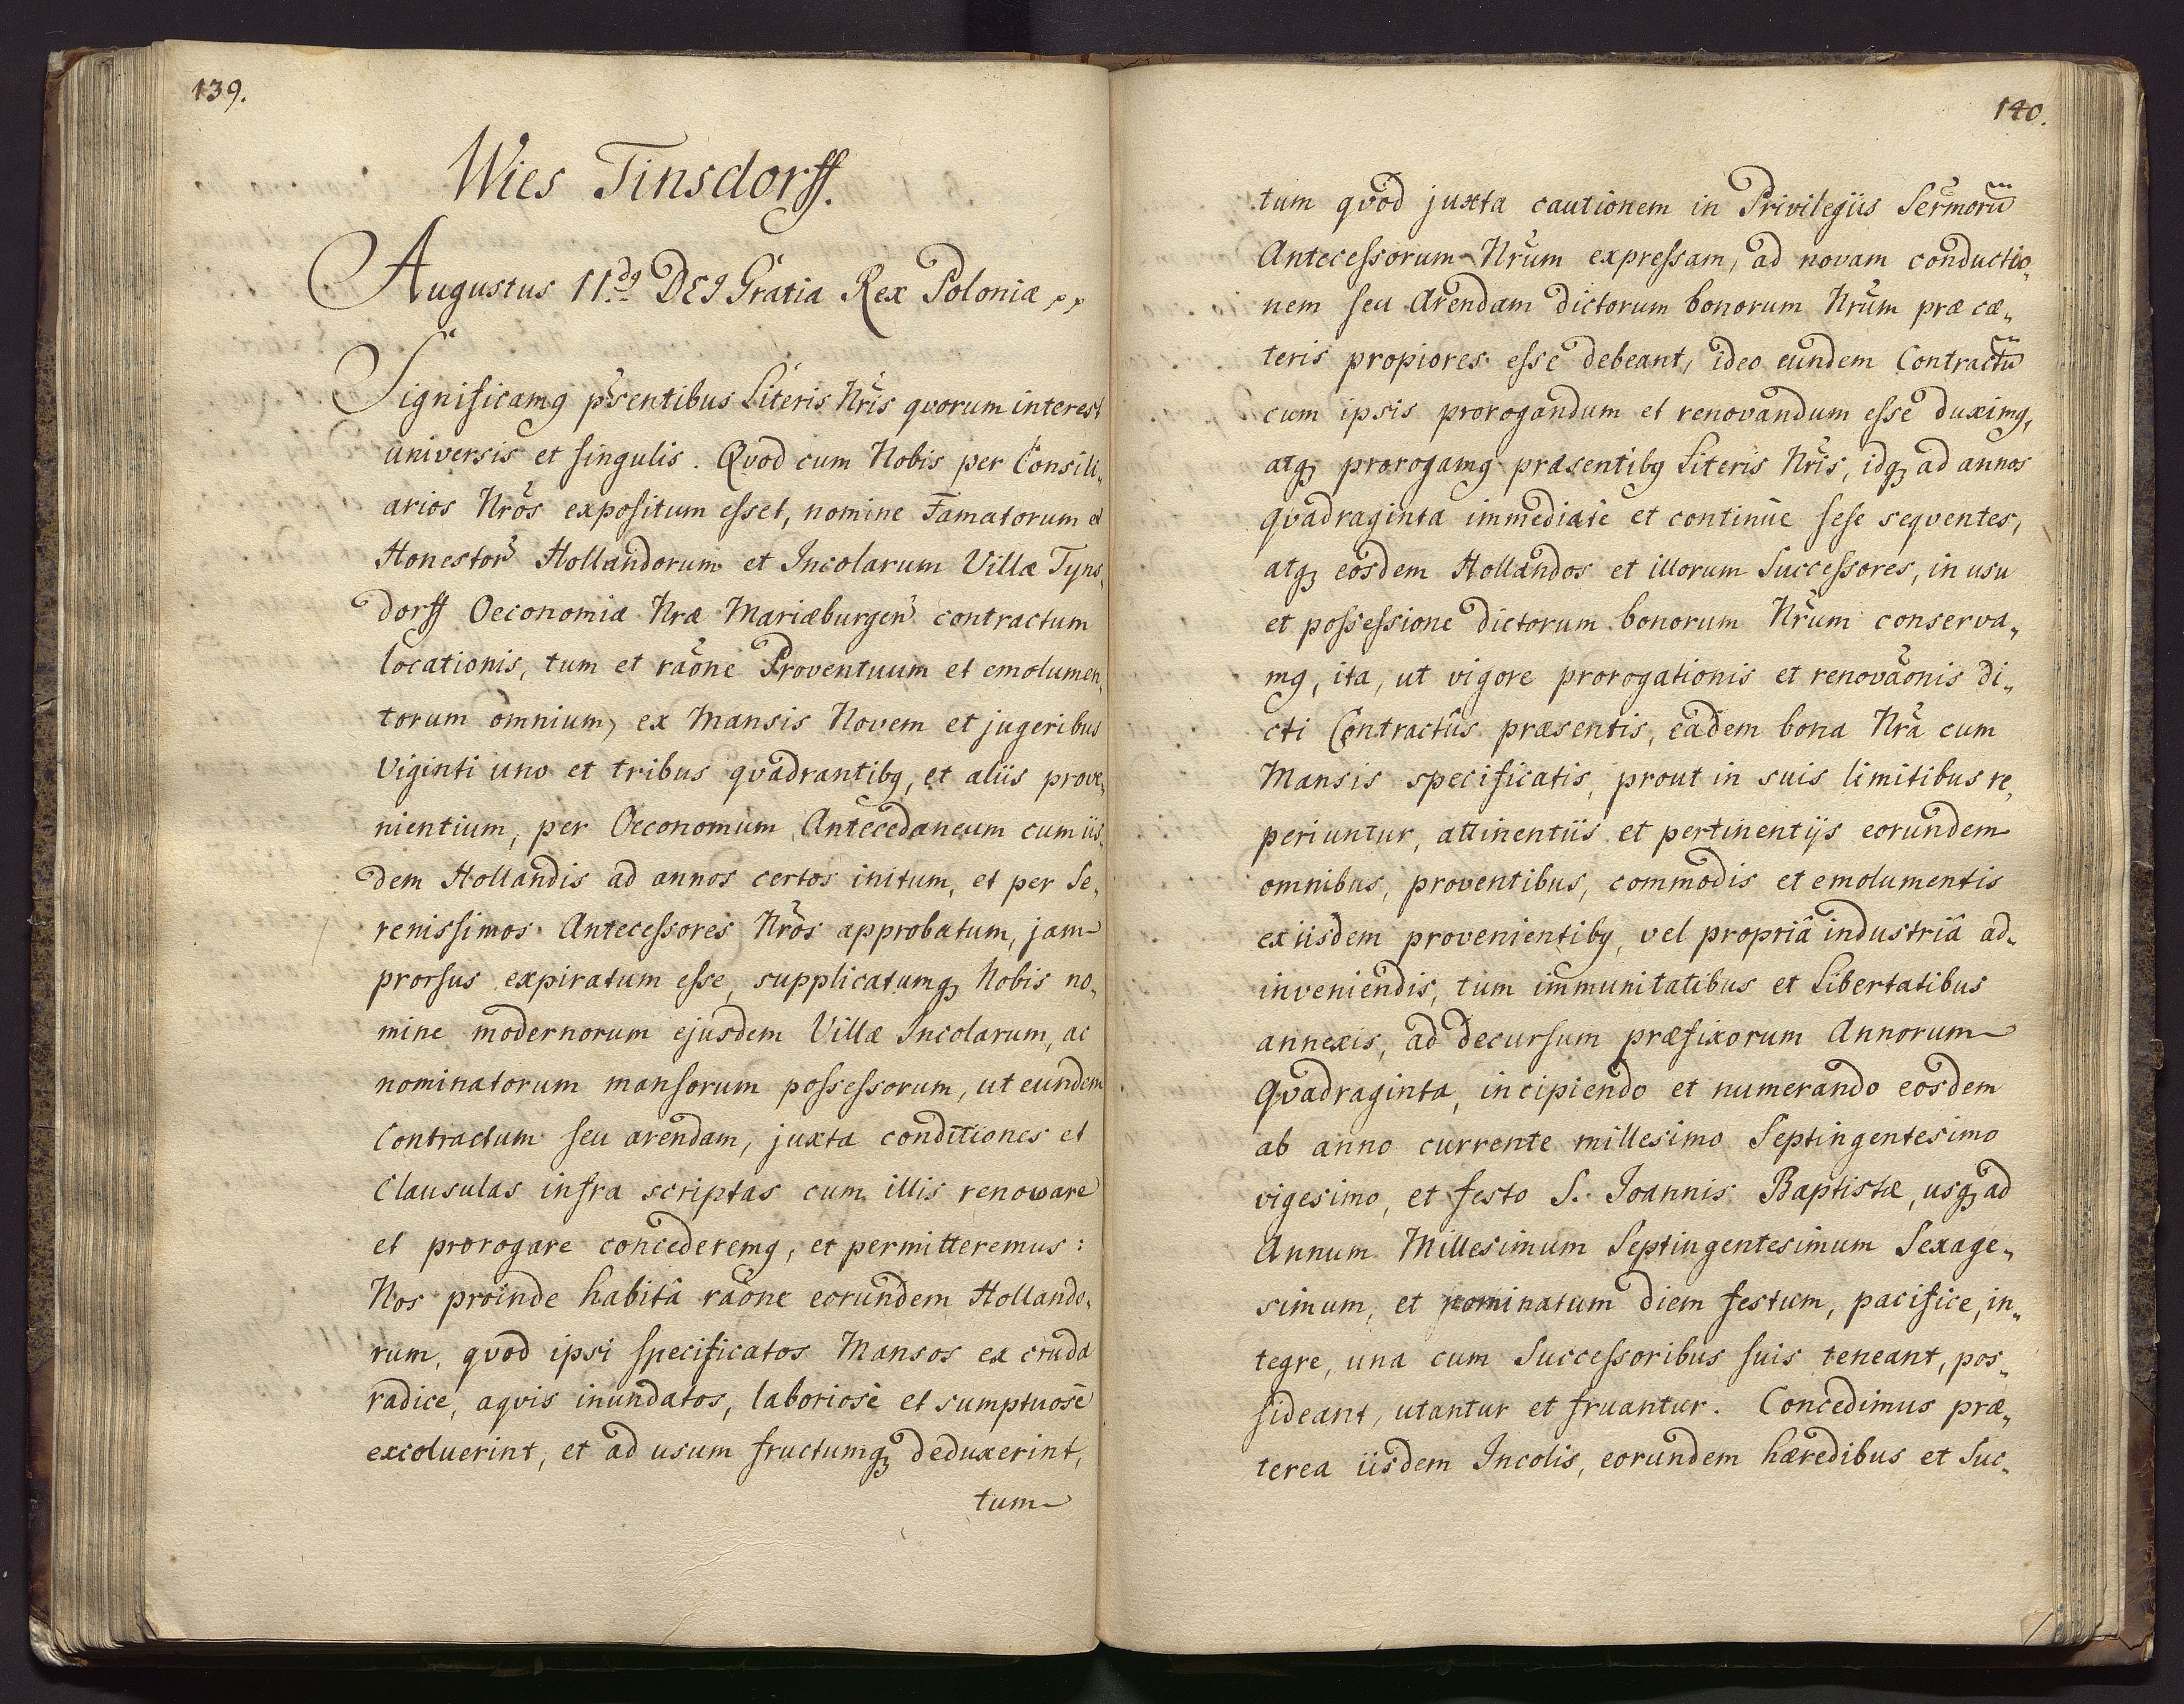 139.
Wies Tinsdorff.
Augustus IIdg DEI Gratia Rex Poloniæ pp
Significamg pṡentibus Literis Nris qvorum interest
universis et singulis. Qvod cum Nobis per Consili„
arios Nros expositum esset, nomine Famatorum et
Honestor Hollandorum et Incolarum Villæ Tyns„
dorff Oeconomiæ Nræ Mariæburgen contractum
locationis, tum et raone Proventuum et emolumen„
torum omnium, ex Mansis Novem et jugeribus
Viginti uno et tribus qvadrantibg, et aliis prove„
nientium, per Oeconomum Antecedaneum cum iis„
dem Hollandis ad annos certos initum, et per Se„
renissimos Antecessores Nros approbatum, jam
prorsus expiratum esse, supplicatumq Nobis no„
mine modernorum ejusdem Villæ Incolarum, ac
nominatorum mansorum possessorum, ut eundem
Contractum seu arendam, juxta conditiones et
Clausulas infra scriptas cum illis renoware
et prorogare concederemg, et permitteremus:
Nos proinde habitâ raone eorundem Hollando„
rum, qvod ipsi specificatos Mansos ex cruda
radice, aqvis inundatos, laboriosè et sumptuosè
excoluerint, et ad usum fructumq deduxerint,
tum
140.
tum qvod juxta cautionem in Privilegiis Sermoru
Antecessorum Nrum expressam, ad novam conductio„
nem seu Arendam dictorum bonorum Nrum præ cæ„
teris propiores esse debeant, ideo eundem Contractu
cum ipsis prorogandum et renovandum esse duximg,
atq prorogamg præsentibg Literis Nris, idq ad annos
qvadraginta immediatè et continuè sese seqventes,
atq eosdem Hollandos et illorum Successores, in usu
et possessione dictorum bonorum Nrum conserva„
mg, ita, ut vigore prorogationis et renovaonis di„
cti Contractûs præsentis, eadem bona Nra cum
Mansis specificatis, prout in suis limitibus re„
periuntur, attinentiis et pertinentijs eorundem
omnibus, proventibus, commodis et emolumentis
ex iisdem provenientibg, vel propriâ industriâ ad„
inveniendis, tum immunitatibus et Libertatibus
annexis, ad decursum præfixorum Annorum
Qvadraginta, incipiendo et numerando eosdem
ab anno currente millesimo Septingentesimo
vigesimo, et festo S. Joannis Baptistæ, usq ad
Annum Millesimum Septingentesimum Sexage„
simum, et nominatum diem festum, pacifice, in„
tegre, una cum Successoribus suis teneant, pos„
sideant, utantur et fruantur. Concedimus præ„
terea iisdem Incolis, eorundem hæredibus et Suc„